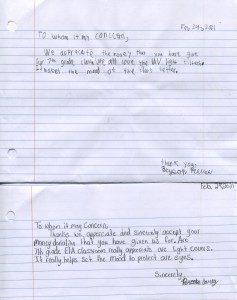 Feb, 24, 2011
TO whom it my concern,
We appreciate the money that you have give
for 7th grade class. We all love the light
It makes the mood of the class better.
thank you,
Feb. 24, 2011
To whom it may Concern,
Thanks we appreciate and sincerely accept your
money donation that you have given us for. Are
7th grade ELA classroom really appreciate are light covers.
It really helps set the mood to protect are eyes.
Sincerely,